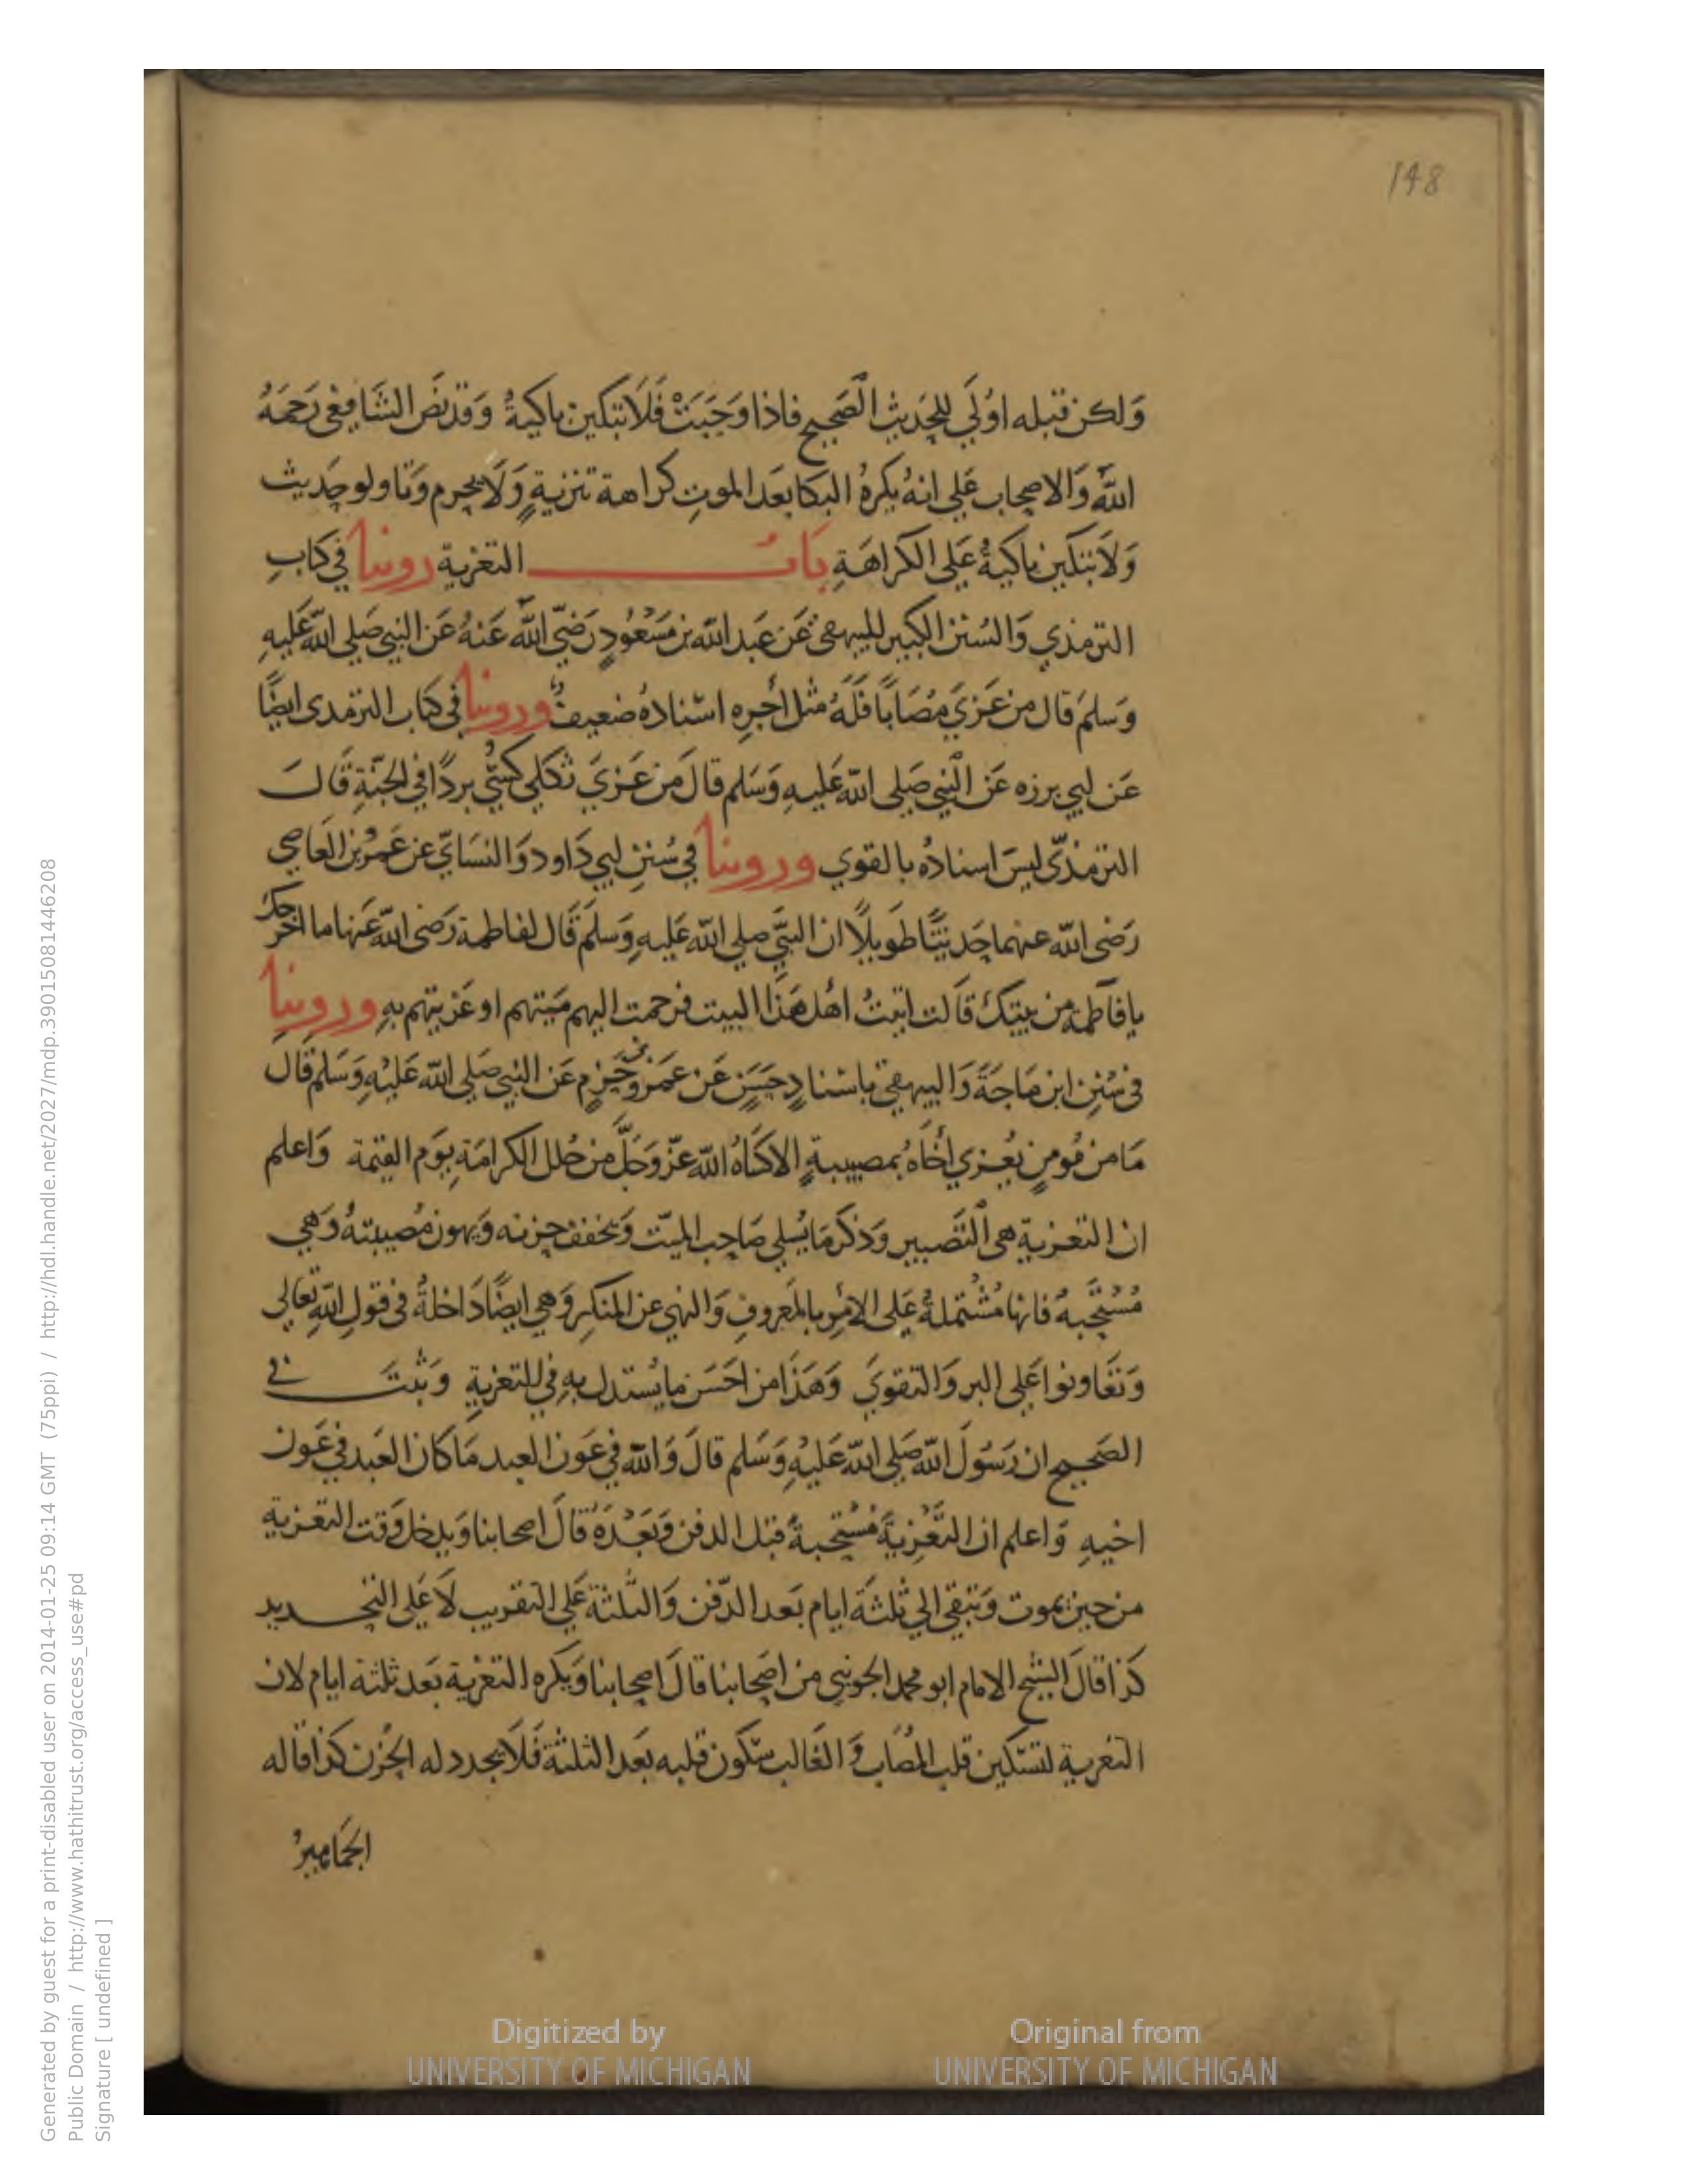 148
وَلكن قبله اوُلَي للحَديثِ الصَحيح فاذا وَجَبَتْ فَلَا تبكين باكيةُ وَقد نصَ الشافِعى رَحمَهُ
اللّهُ وَالاصحاب عَلي انهُ يكرهُ البكا بعَد الموتِ كراهة تنزيةٍ وَلَا يحرم وَتاولو حَديث
وَلاَ تبكين باكيةُ عَلى الكراهَةِ بَابُ التعزية روينا في كتابِ
الترمذي وَالسُنن الكبير للبيهقى عَن عَبد اللّه بن مسَعُودٍ رَضيَ اللّه عَنهُ عَن النبي صَلى اللّه عَليهِ
وَسَلمَ قال من عَزيَ مُصَابًا فَلَهُ مثل أجرِهِ اسنادهُ ضعيف وروينا في كتاب الترمدى ايضًا
عَن ابي برزه عَن النبي صَلى اللّه عَليهِ وَسَلم قالَ من عَزيَ ثكلي كسيَ بردًا في الجنّةِ قَالَ
الترمذيّ ليسَ اسنادُه بالقوي وروينا في سُننِ ابي دَاود وَالنسَائيّ عن عَمرُو بن العَاصِي
رَضى اللّه عنهما حَديثًا طَويلًا ان النبيَّ صلي اللّه عَليهِ وَسلَمَ قَال لفاطمة رَضى اللّه عَنها ما اخرجَكِ
يا فَاطمة من بيتكِ قَالت اتيتُ اهُل هَذا البيت فرحمت اليهم ميَتهم او عَزيتهم بهِ وروينا
فى سُننِ ابن مَاجَة وَالبيهقى باسنادٍ حَسَنٍ عَن عَمرو بن حَزمٍ عَن النبي صَلى اللّه عَليْهِ وَسَلم قَال
مَا من مُومنٍ يُعزي أخَاهُ بمصيبةٍ الا كسَاهُ اللّه عزّ وَجَلَّ من حُلل الكرامَةِ يوَم القيمة وَاعلم
ان التعزية هى التصبير وَذكر مَا يُسلي صَاحب الميّت وَيخفف حزنه وَيهون مُصيبتهُ وَهي
مُسْتَحبهُ فانها مُشتملةُ عَلى الامْرِ بالمَعروفِ وَالنهي عن المنكرِ وَهي ايضًا دَاخلةُ في قولِ اللّهِ تعَالي
وَتعَاونوا عَلي البر وَالتقويَ وَهَذا من احَسَن ما يُستدل بهِ في التعزيةِ وَثبتَ فى
الصَحيح ان رَسُولَ اللّهِ صَلى اللّه عَليْهِ وَسَلم قالَ وَاللّه في عَون العبد مَا كان العَبد في عَون
اخيهِ وَاعلم ان التَّعْزِيةَ مُسْتحبةً قبل الدفن وَبَعْدَهُ قالَ اصحابنا وَيدخل وَقت التعَزية
من حين يموت وَتبقي الي ثلثَة ايام بَعد الدّفن وَالثلثة عَلي التقريب لَا عَلي التحديد
كذا قالَ الشيخ الامام ابو محمد الجوينيِ من اصَحابنا قالَ اصحابنا وَيكره التعَزية بَعد ثلثة ايام لان
التعزية لتسَكين قلب المصَاب وَ الغَالب سَكون قلبه بعَد الثلثة فَلَا يجدد له الحُزن كذا قاله
الجمَاهيرُ
Generated by guest for a print-disabled user on 2014-01-25 09:14 GMT (75ppi) / http://hdl.handle.net/2027/mdp.39015081446208
Public Domain / http://www.hathitrust.org/access_use#pd
Signature [ undefined ]
Digitized by
UNIVERSITY OF MICHIGAN
Original from
UNIVERSITY OF MICHIGAN